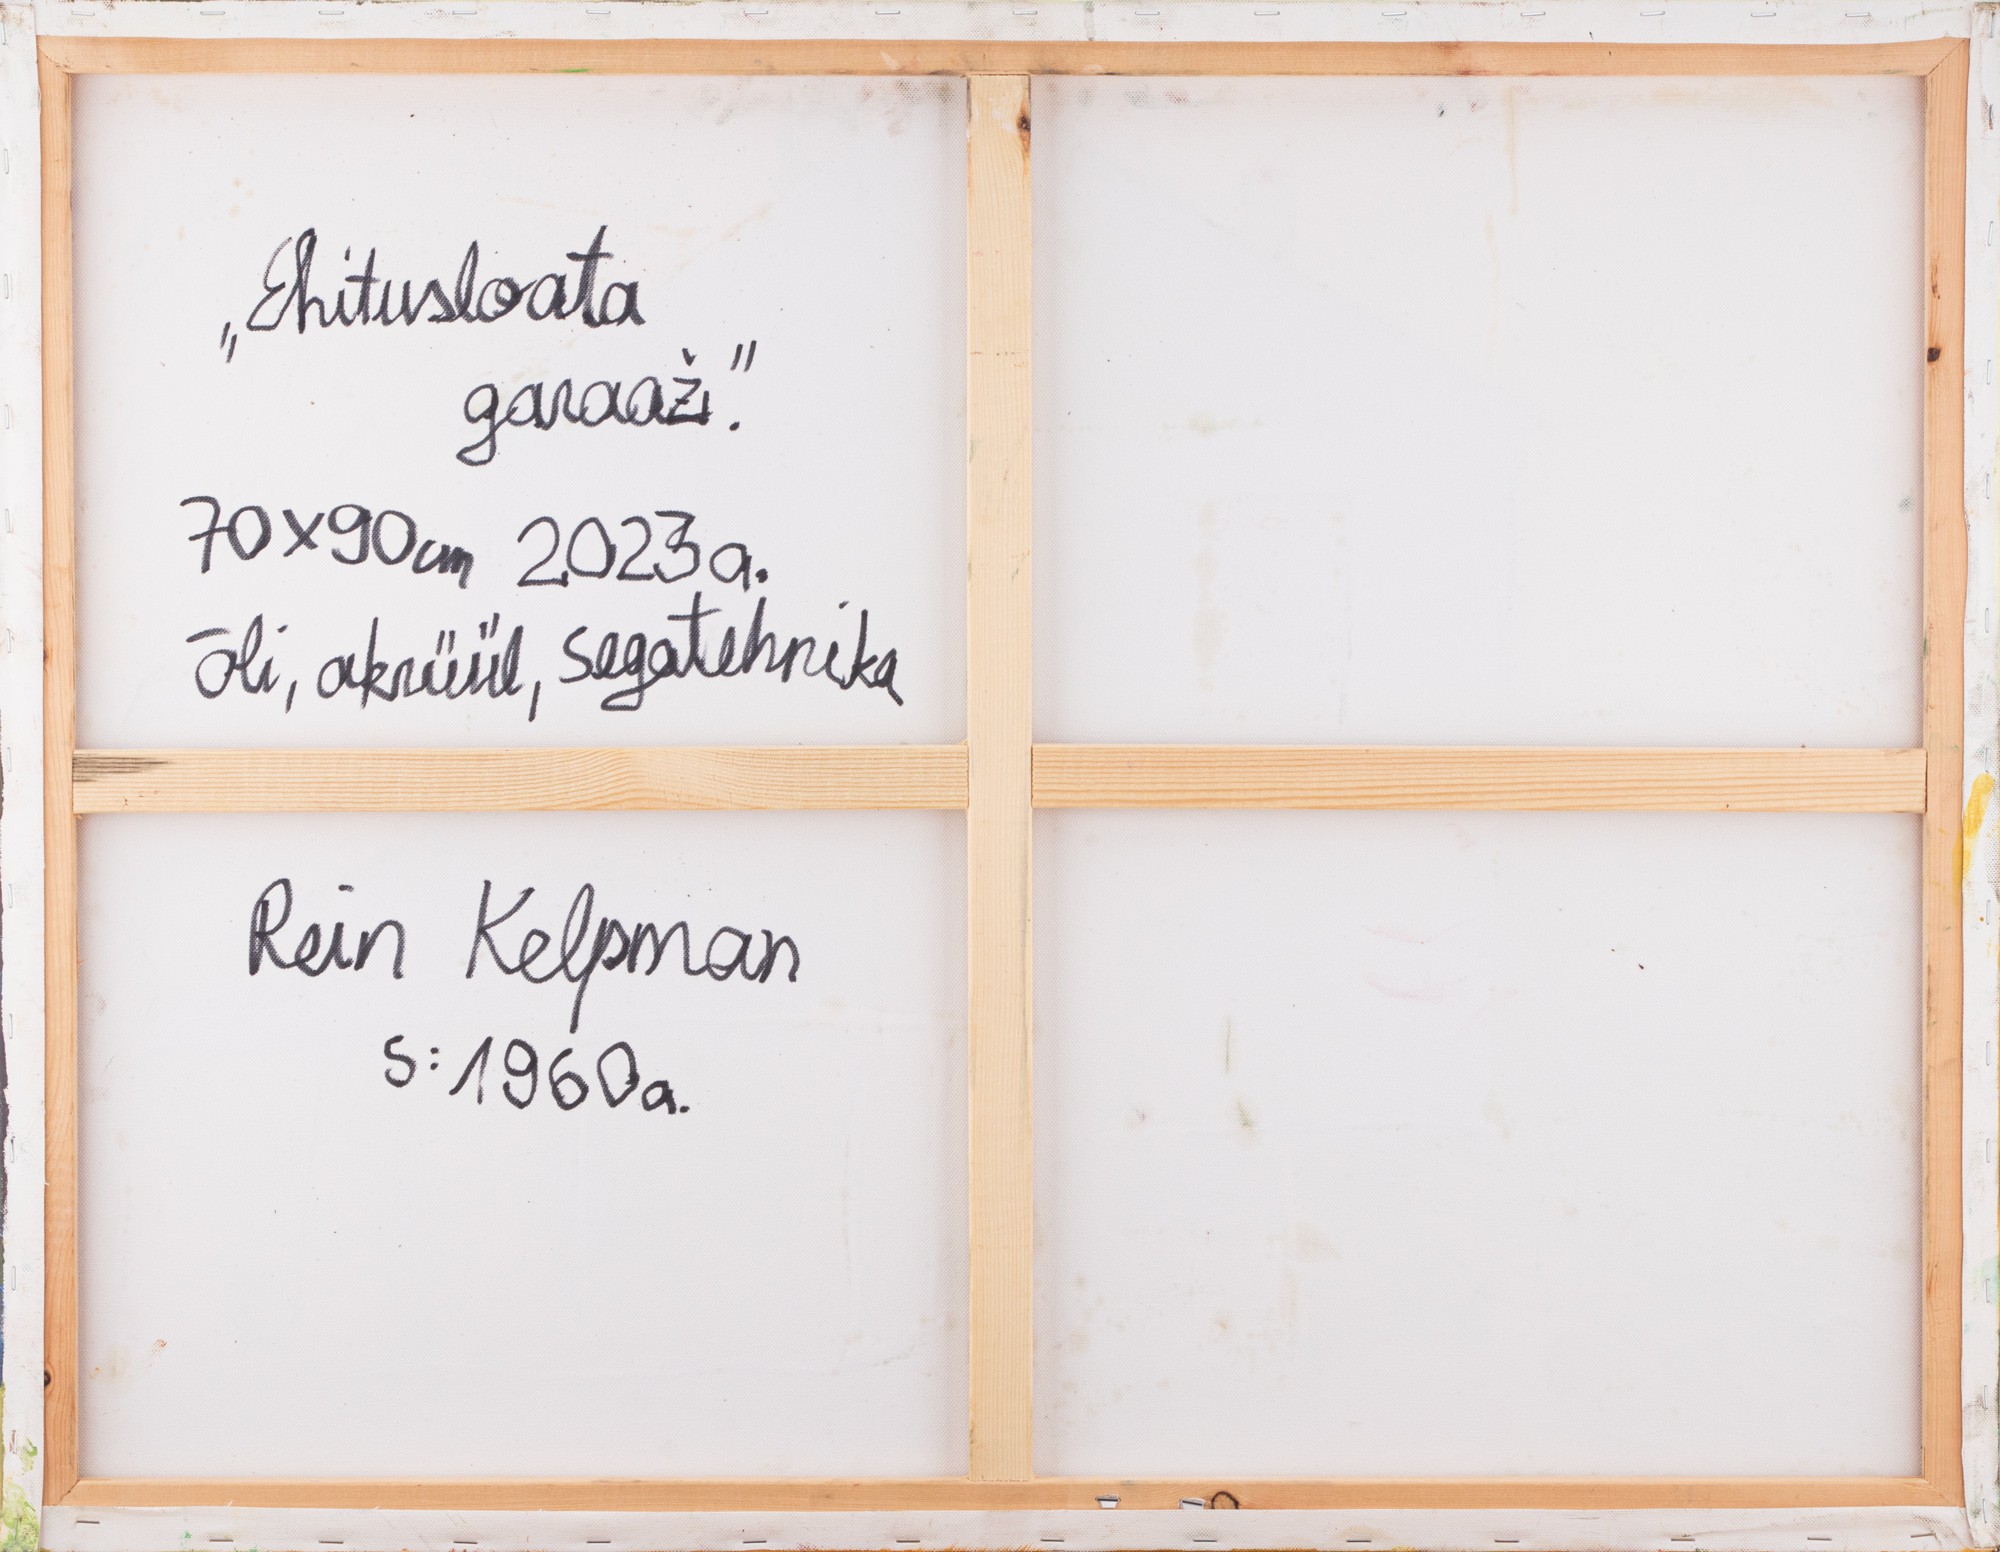 „Ehitusloata
garaaž."
70x90cm 2023a.
õli, akrüül, segatehnika
Rein Kelpman
s:1960a.